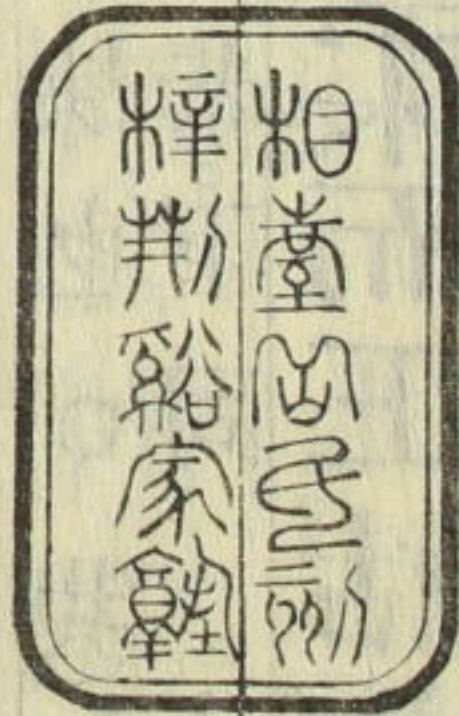 相臺岳氏刻
梓荆谿家塾